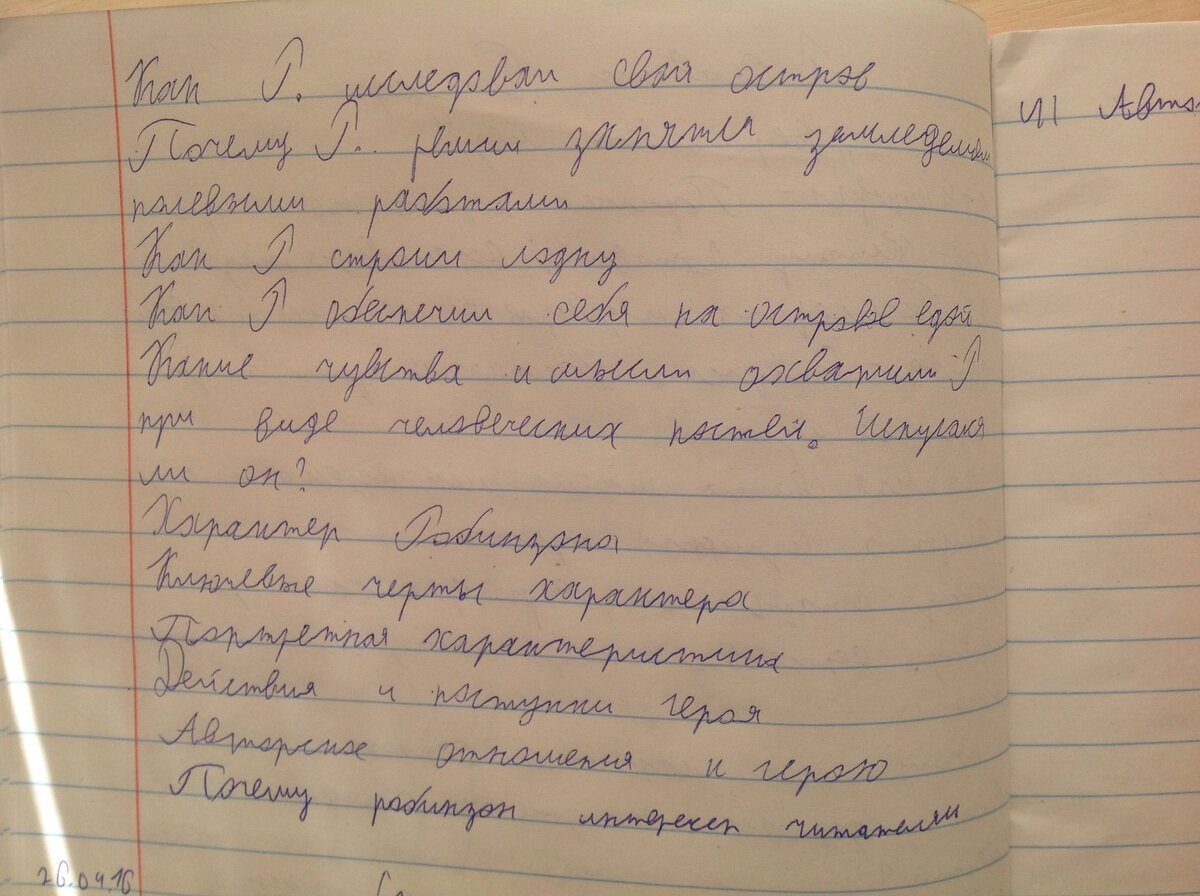 Как Р. исследовал свой остров
Почему Р. решил заняться земледелием
полевыми работами
Как Р строил лодку
Как Р обеспечил себя на острове едой
Какие чувства и мысли охватили Р
при виде человеческих костей. Испугался
ли он?
Характер Робинзона
Ключевые черты характера
Портретная характеристика
Действия и поступки героя
Авторское отношения к герою
Почему робинзон интересен читателям
26.04.16
VI Авто